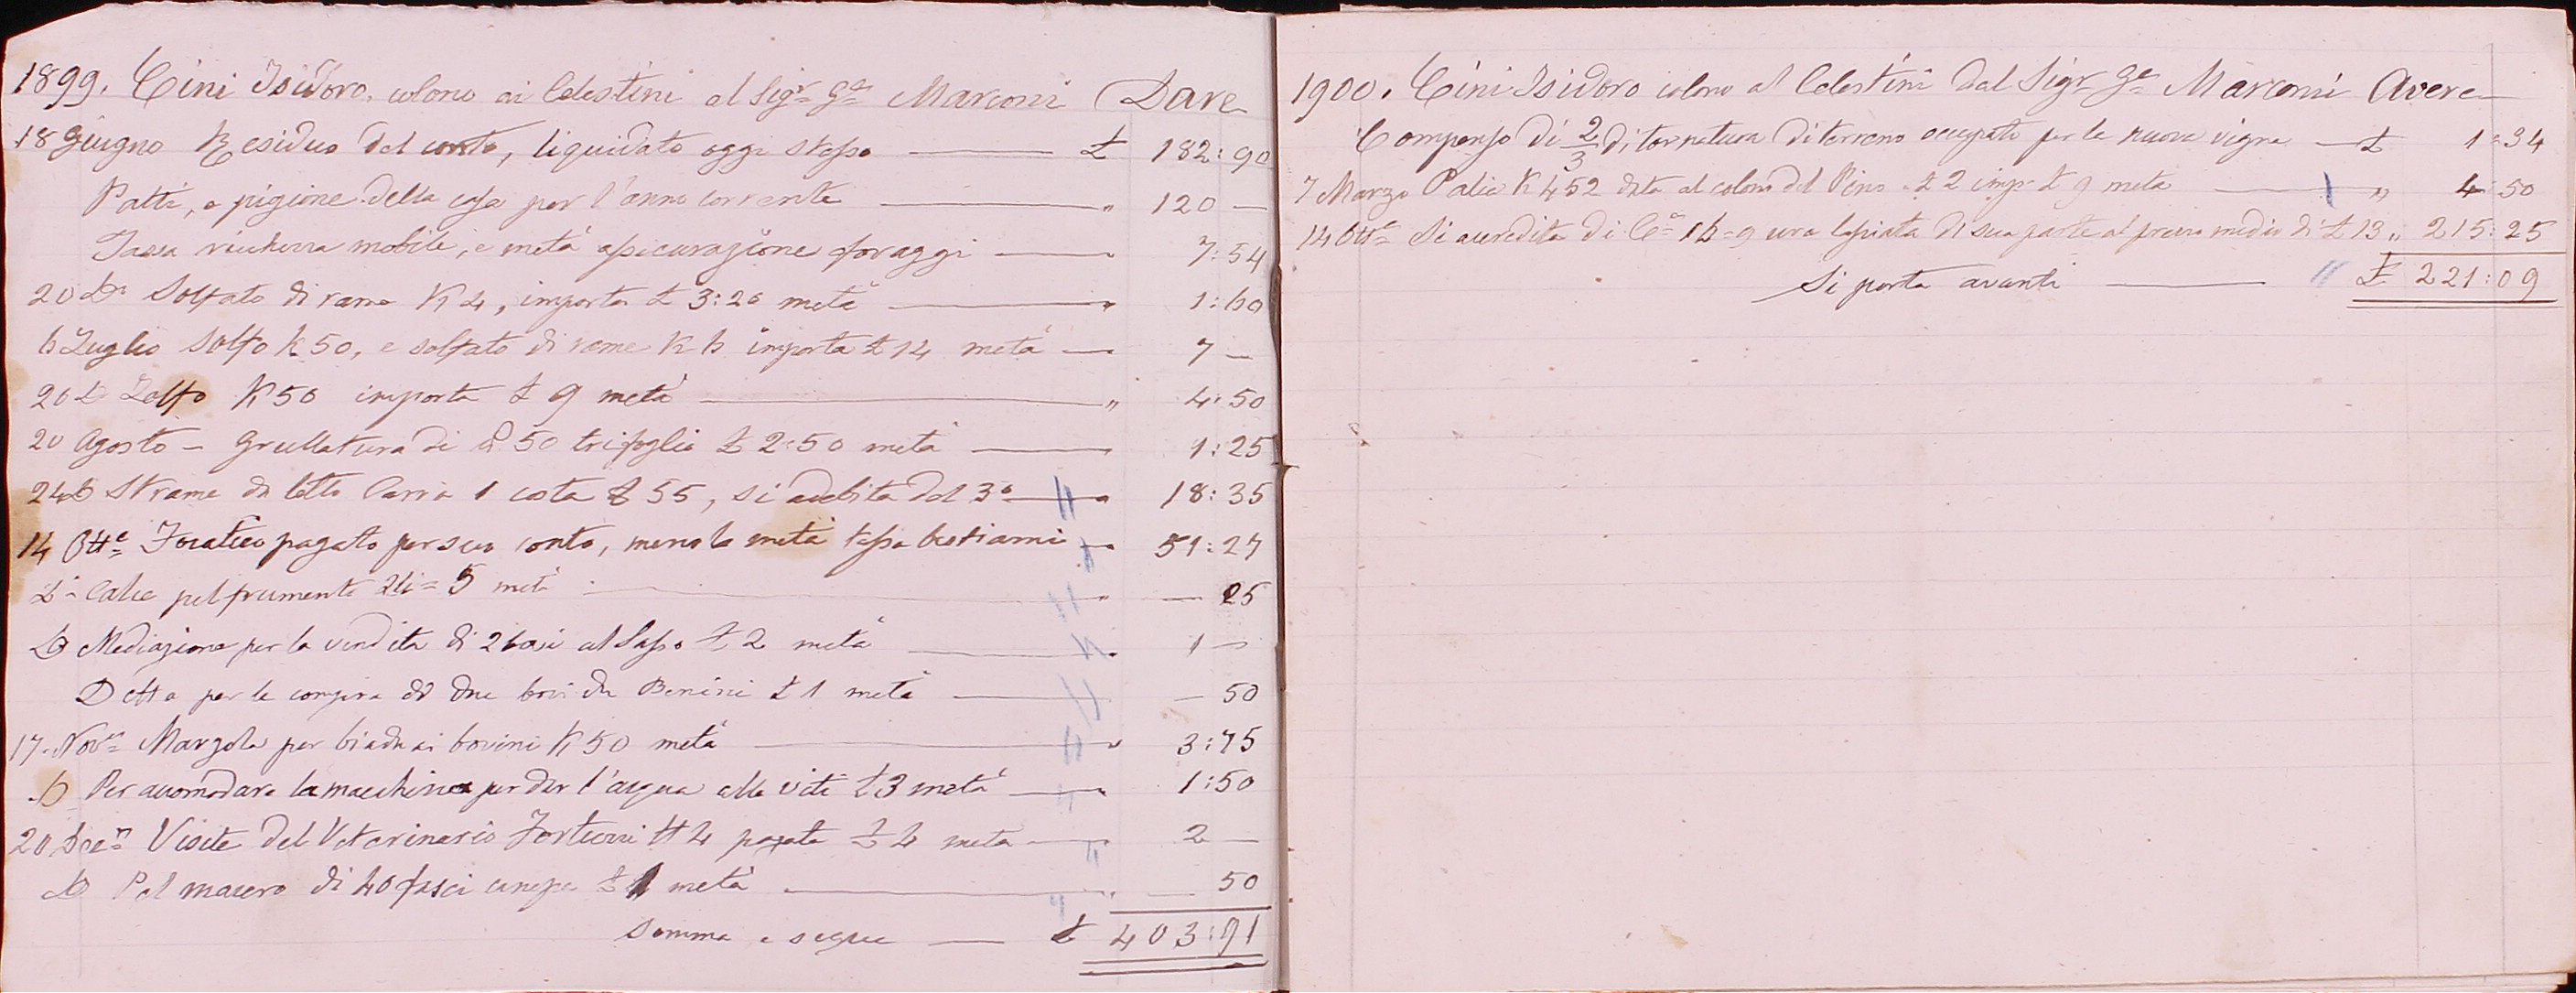 1899. Cini Isidoro, colono ai Celestini al Sigr. Ge Marconi Dare
18 Giugno Residuo del conto, liquidato oggi stesso — £ 182:90
Patti, e pigione della casa per l'anno corrente — " 120 —
Tassa ricchezza mobile, e metà assicurazione foraggi — " 7:54
20 Do Solfato di rame K 4, importa £ 3:20 metà — " 1:60
6 Luglio Solfo K 50, e solfato di rame K 6 importa £ 14 metà — " 7 —
20 Do Zolfo K 50 importa £ 9 metà — " 4:50
20 Agosto – Grullatura di 50 trifoglio £ 2:50 metà — 1:25
24 Do Strame da letto Carra 1 costa £ 55, si addebita del 3o — " 18:35
14 Otte Focatico pagato per suo conto, meno la metà tassa bestiami — " 51:27
Do Calce pel frumento = 5 metà — " — 25
Do Mediazione per la vendita di 2 bovi al Sasso £ 2 metà — " 1 —
Detta per la compra di due bovi da Benini £ 1 metà — — 50
17. Nove Marzola per biada ai bovini K 50 metà — " 3:75
Do Per accomodare la macchina per dar l'acqua alle viti £ 3 metà — " 1:50
20 Dcem Visite del Veterinario N 4 pagate £ 4 metà — " 2 —
Do Pel macero di 40 fasci canepa £ 1 metà — " — 50
Somma e segue — £ 403:91
1900. Cini Isidoro colono al Celestini dal Sigr Ge Marconi Avere
Compenso di 2/3 di tornatura di terreno occupato per le nuove vigne — £ 1:34
7 Marzo Palie K 452 data al colono del Pino a £ 2 imp. £ 9 metà — " 4:50
14 Otte Si accredita di Ce 16=9 uva lasciata di sua parte al prezzo medio di £ 13 " 215:25
Si porta avanti — £ 221:09